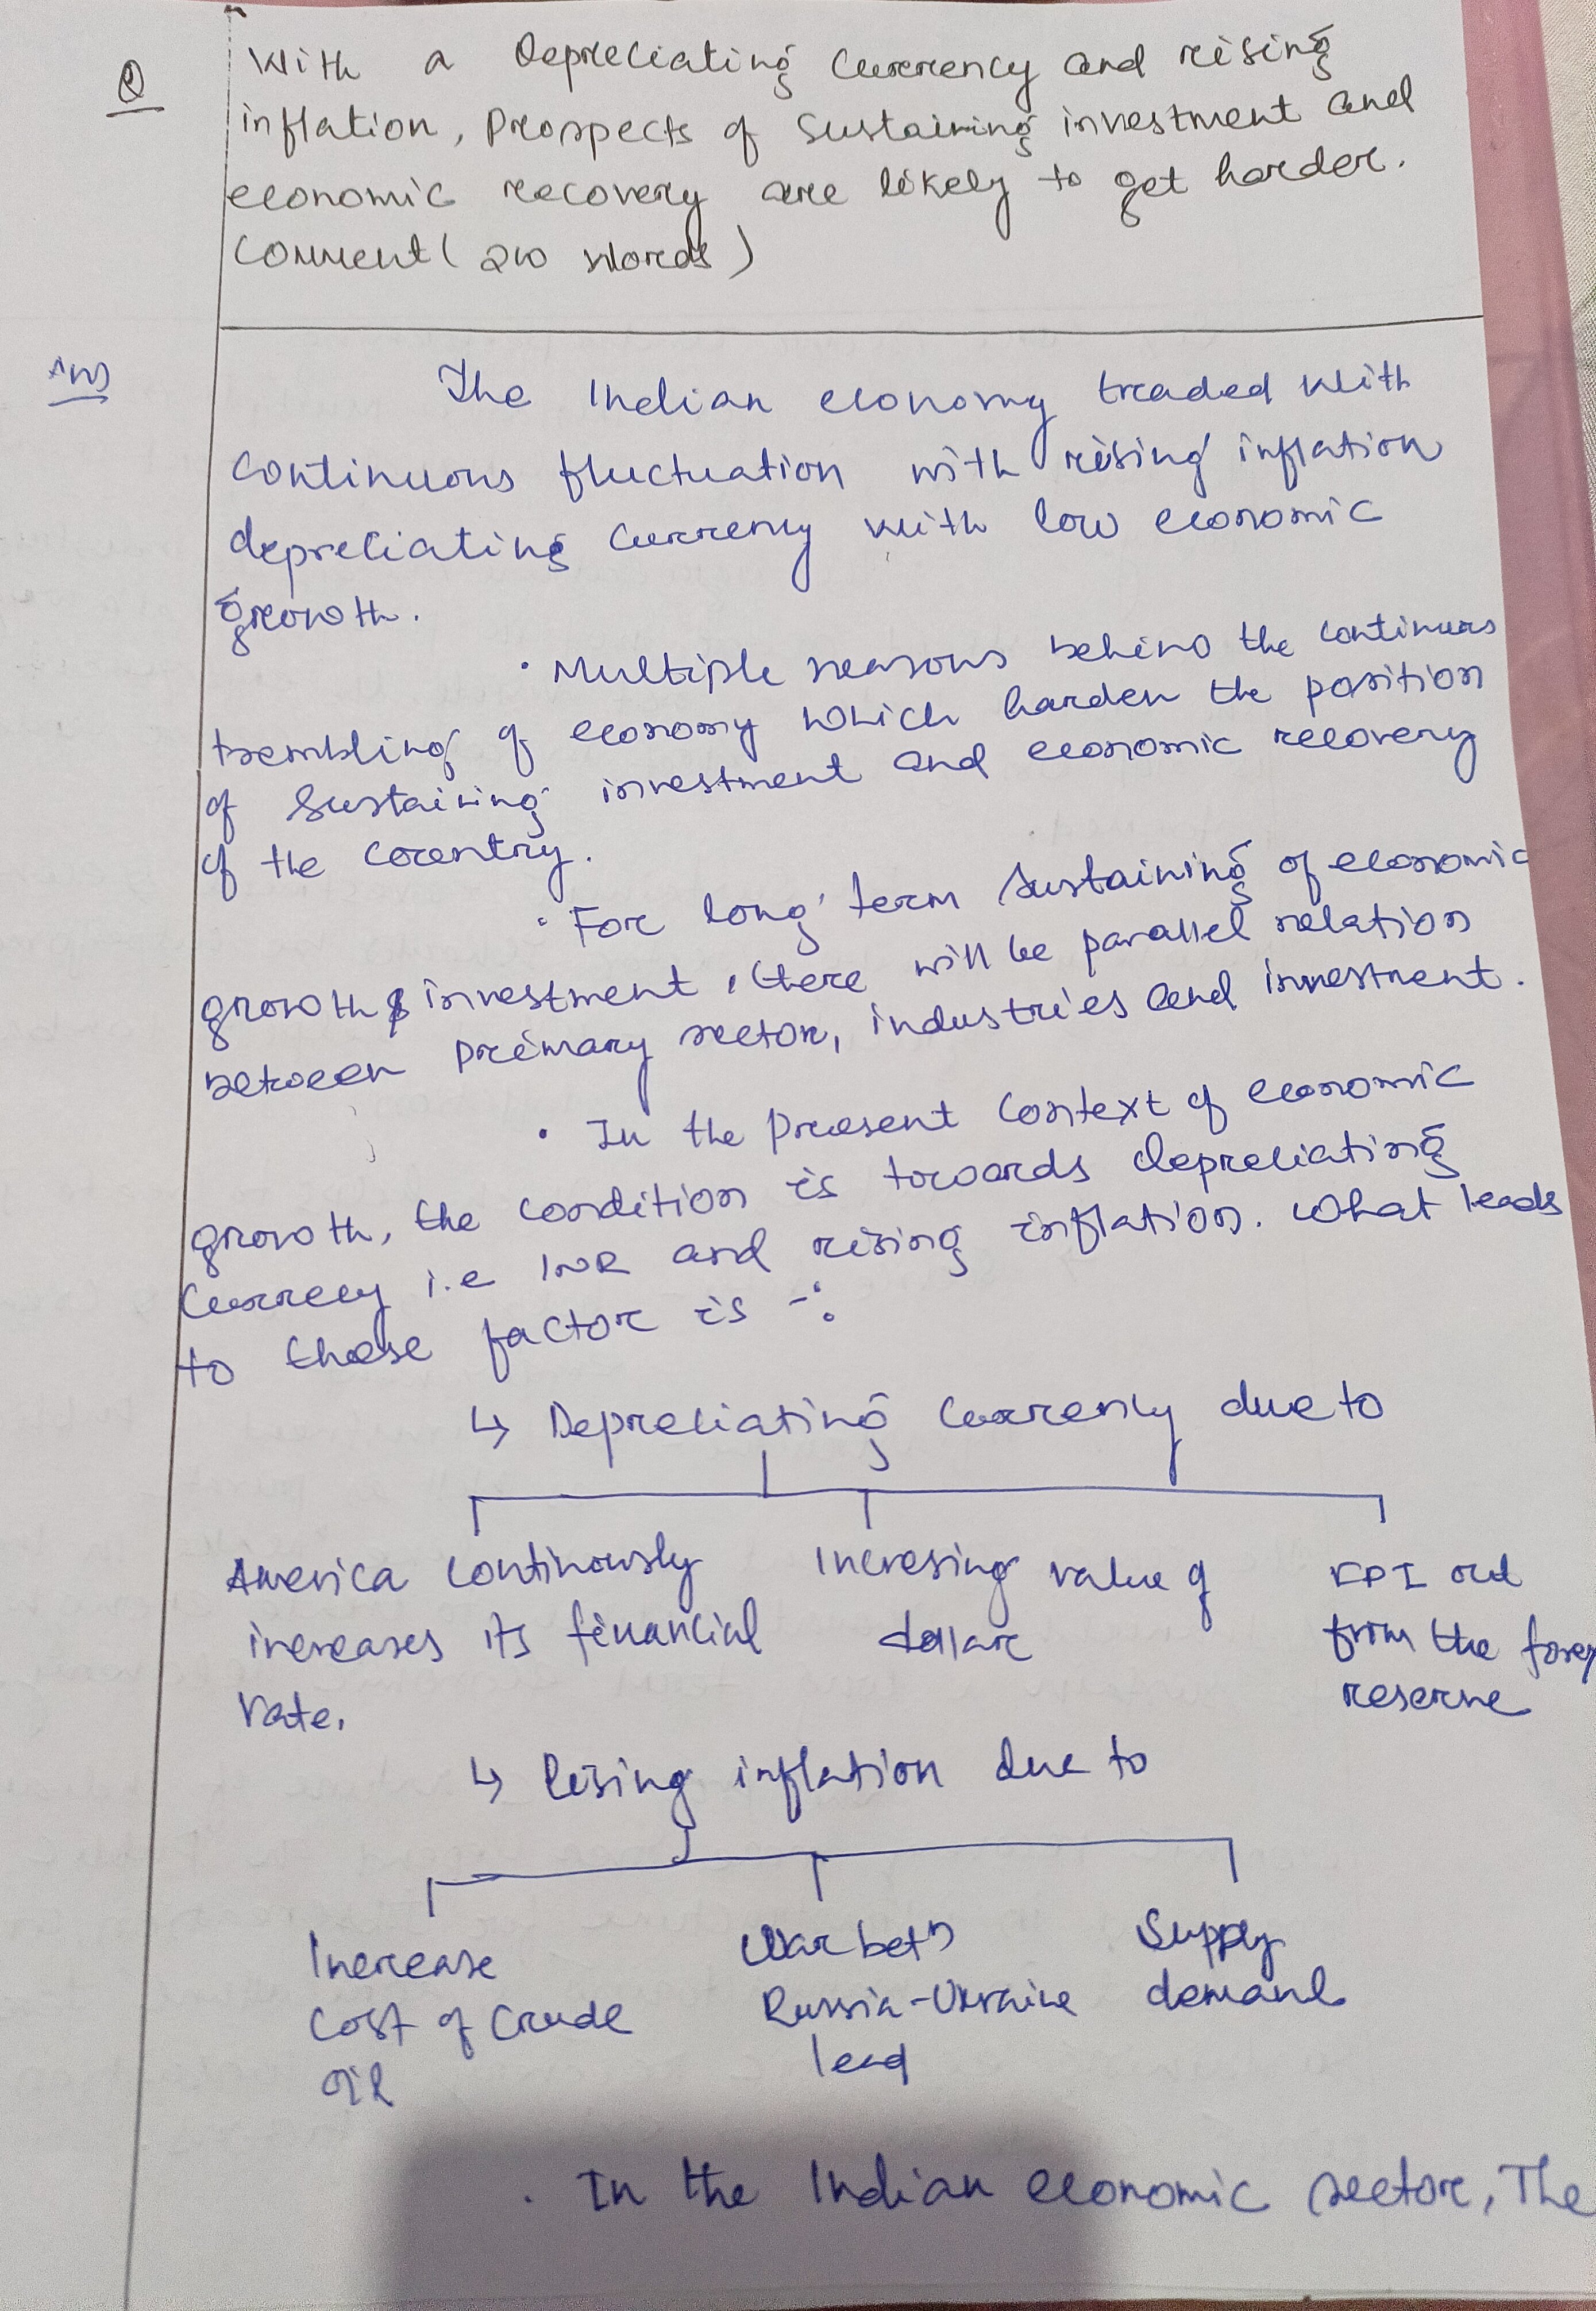 Q
With a Depreciating Currency and rising
inflation, Prospects of Sustaining investment and
economic recovery are likely to get harder.
Comment (200 words)
Ans
The Indian economy traded with
continuous fluctuation with rising inflation
depreciating currency with low economic
growth.
• Multiple reasons behind the continuos
trembling of economy which harden the position
of Sustaining investment and economic recovery
of the country.
• For long term sustaining of economic
growth & investment, there will be parallel relation
between primary sector, industries and investment.
• In the present context of economic
growth, the condition is towards depreciating
i.e INR and rising inflation. What leads
to these factor is -:
↳ Depreciating Currency due to
America continously
increases its financial
rate.
Incresing value of
dollar
FPI out
from the
reserve
↳ Rising inflation due to
Increase
cost of crude
oil
War betn
Russia-Ukraine
lead
Supply
demand
• In the Indian economic sector, The